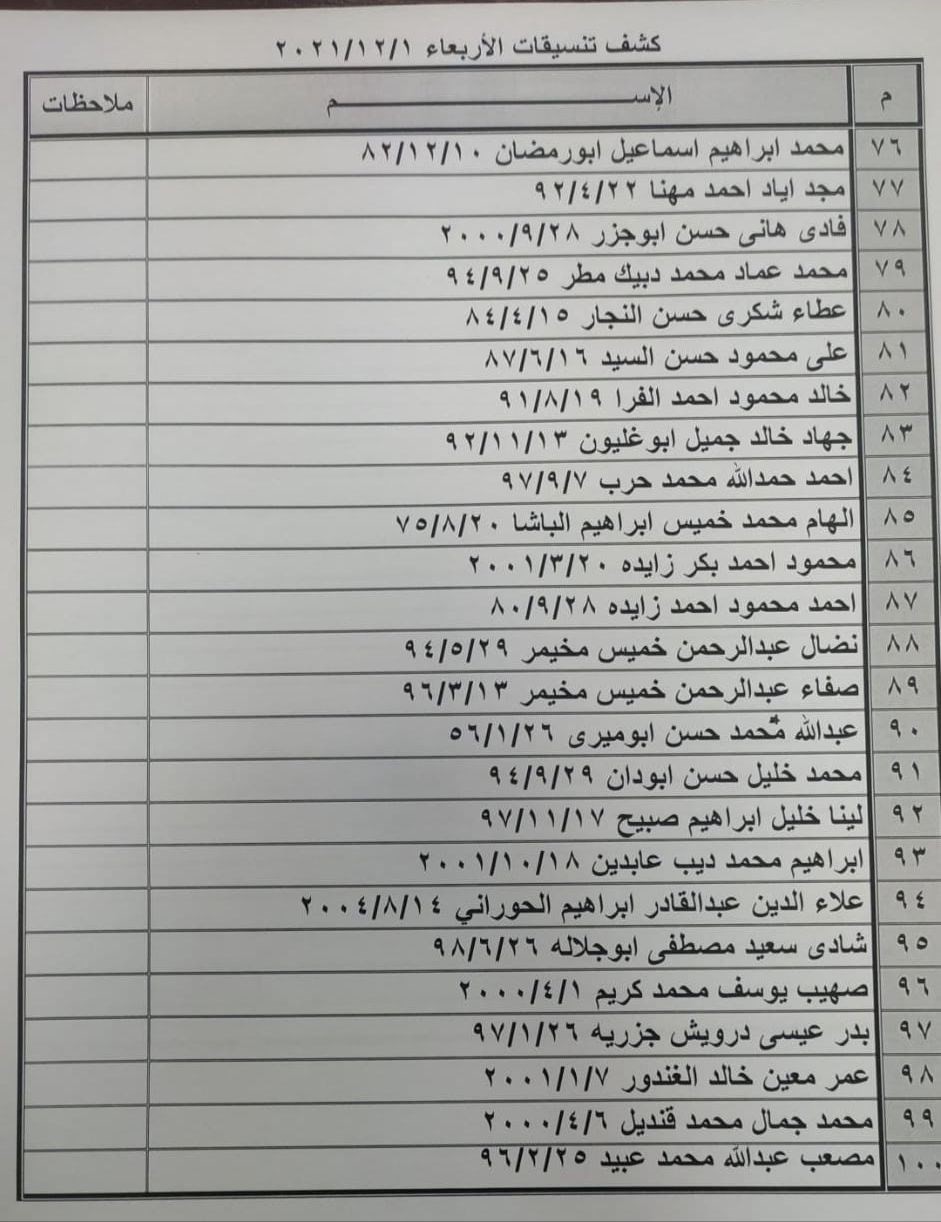 كشف تنسيقات الأربعاء ٢٠٢١/١٢/١
م الإســـــــم ملاحظات
٧٦ محمد ابراهيم اسماعيل ابورمضان ٨٢/١٢/١٠
٧٧ مجد اياد احمد مهنا ٩٢/٤/٢٢
٧٨ فادى هانى حسن ابوجزر ٢٠٠٠/٩/٢٨
٧٩ محمد عماد محمد دبيك مطر ٩٤/٩/٢٥
٨٠ عطاء شكرى حسن النجار ٨٤/٤/١٥
٨١ على محمود حسن السيد ٨٧/٦/١٦
٨٢ خالد محمود احمد الفرا ٩١/٨/١٩
٨٣ جهاد خالد جميل ابوغليون ٩٢/١١/١٣
٨٤ احمد حمدالله محمد حرب ٩٧/٩/٧
٨٥ الهام محمد خميس ابراهيم الباشا ٧٥/٨/٢٠
٨٦ محمود احمد بكر زايده ٢٠٠١/٣/٢٠
٨٧ احمد محمود احمد زايده ٨٠/٩/٢٨
٨٨ نضال عبدالرحمن خميس مخيمر ٩٤/٥/٢٩
٨٩ صفاء عبدالرحمن خميس مخيمر ٩٦/٣/١٣
٩٠ عبدالله محمد حسن ابوميرى ٥٦/١/٢٦
٩١ محمد خليل حسن ابودان ٩٤/٩/٢٩
٩٢ لينا خليل ابراهيم صبيح ٩٧/١١/١٧
٩٣ ابراهيم محمد ديب عابدين ٢٠٠١/١٠/١٨
٩٤ علاء الدين عبدالقادر ابراهيم الحوراني ٢٠٠٤/٨/١٤
٩٥ شادى سعيد مصطفى ابوجلاله ٩٨/٦/٢٦
٩٦ صهيب يوسف محمد كريم ٢٠٠٠/٤/١
٩٧ بدر عيسى درويش جزريه ٩٧/١/٢٦
٩٨ عمر معين خالد الغندور ٢٠٠١/١/٧
٩٩ محمد جمال محمد قنديل ٢٠٠٠/٤/٦
١٠٠ مصعب عبدالله محمد عبيد ٩٦/٢/٢٥